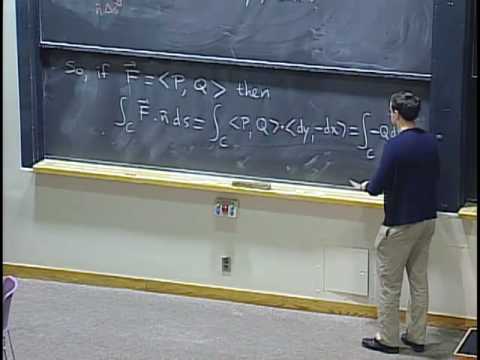 n̂Δs
So, if F⃗ = <P, Q> then
∫_C F⃗ · n̂ ds = ∫_C <P, Q> · <dy, -dx> = ∫_C -Q d